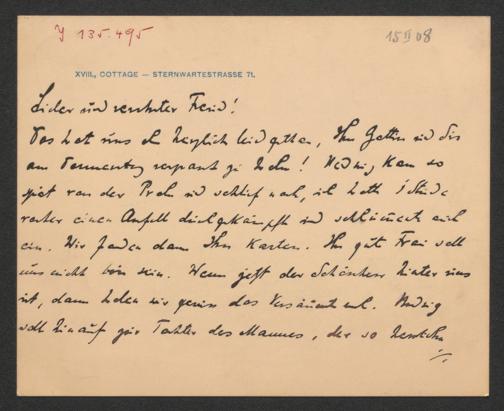 J 135.495
15 II 08
XVIII., COTTAGE — STERNWARTESTRASSE 71.
Lieber und verehrter Freund!
Das hat uns herzlich leid gethan, Ihre Gattin und Sie
am Donnerstag verpasst zu haben! Hedwig kam so
spät von der Probe und schlief noch, ich hatte 1 Stunde
vorher einen Anfall durchgekämpft und schlummerte auch
ein. Wir fanden dann Ihre Karten. Ihre gute Frau soll
uns nicht bös sein. Wenn jetzt der hinter uns
ist, dann holen wir gewiss das Versäumte nach. Hedwig
will hinauf zur Tochter des Mannes, der so